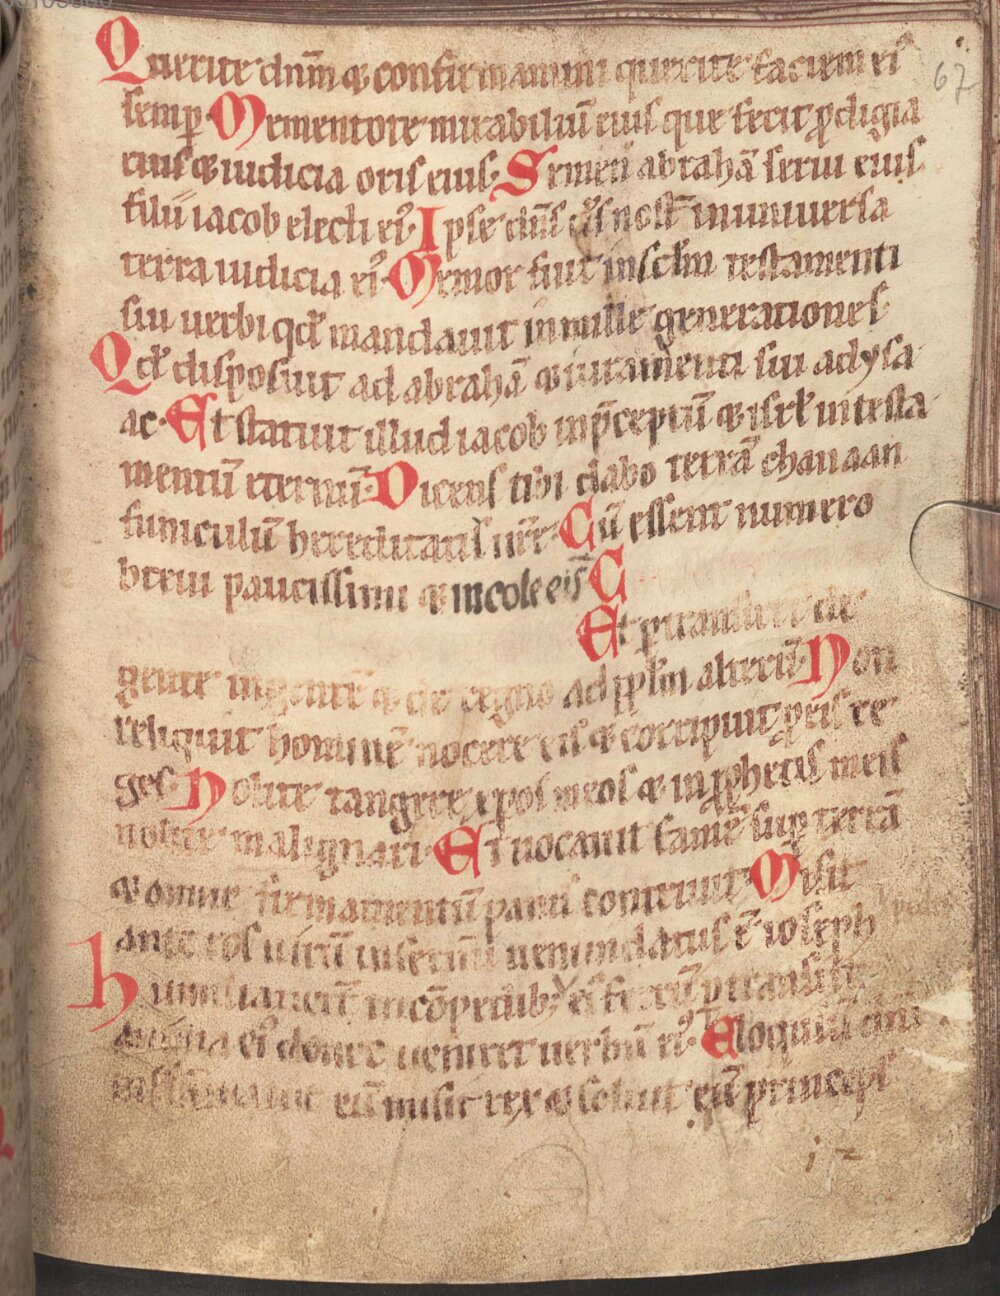 Querite dnm̄ & confirmamini querite faciem ei᷒
semꝑ Mementote mirabiliū eius que fecit ꝓdigia
eius & iudicia oris eius. Semen abrahā serui eius.
filii iacob electi ei᷒. Ipse dn̄s ds̄ nost̄ in uniuersa
terra iudicia ei᷒. Memor fuit in sclm̄ testamenti
sui uerbi qđ mandauit in mille generationes.
Qđ disposuit ad abrahā & iuramenti sui ad ysa
ac. Et statuit illud iacob in p̄ceptū & isrł in testa
mentū eternū. Dicens tibi dabo terrā chanaan
funiculū hereditatis ur̄e. Cū essent numero
breui paucissimi & incole eis̄ C
Et ꝑtransier̄t de
gente in gentē & de regno ad pplm̄ alterū. Non
reliquit hominē nocere eis & corripuit ꝓ eis re
ges. Nolite tangere xpos meos & in ꝓphetis meis
nolite malignari. Et uocauit famē sup terrā
& omne firmamentū panis contriuit. Misit
ante eos uirū in seruū uenundatus ē ioseph
Humiliauerūt in cōpedib; ei᷒ ferrū ꝑtransiit
anima ei᷒ donec ueniret uerbū ei᷒. Eloquiū dn̄i
inflāmauit eū misit rex & soluit eū princeps
67